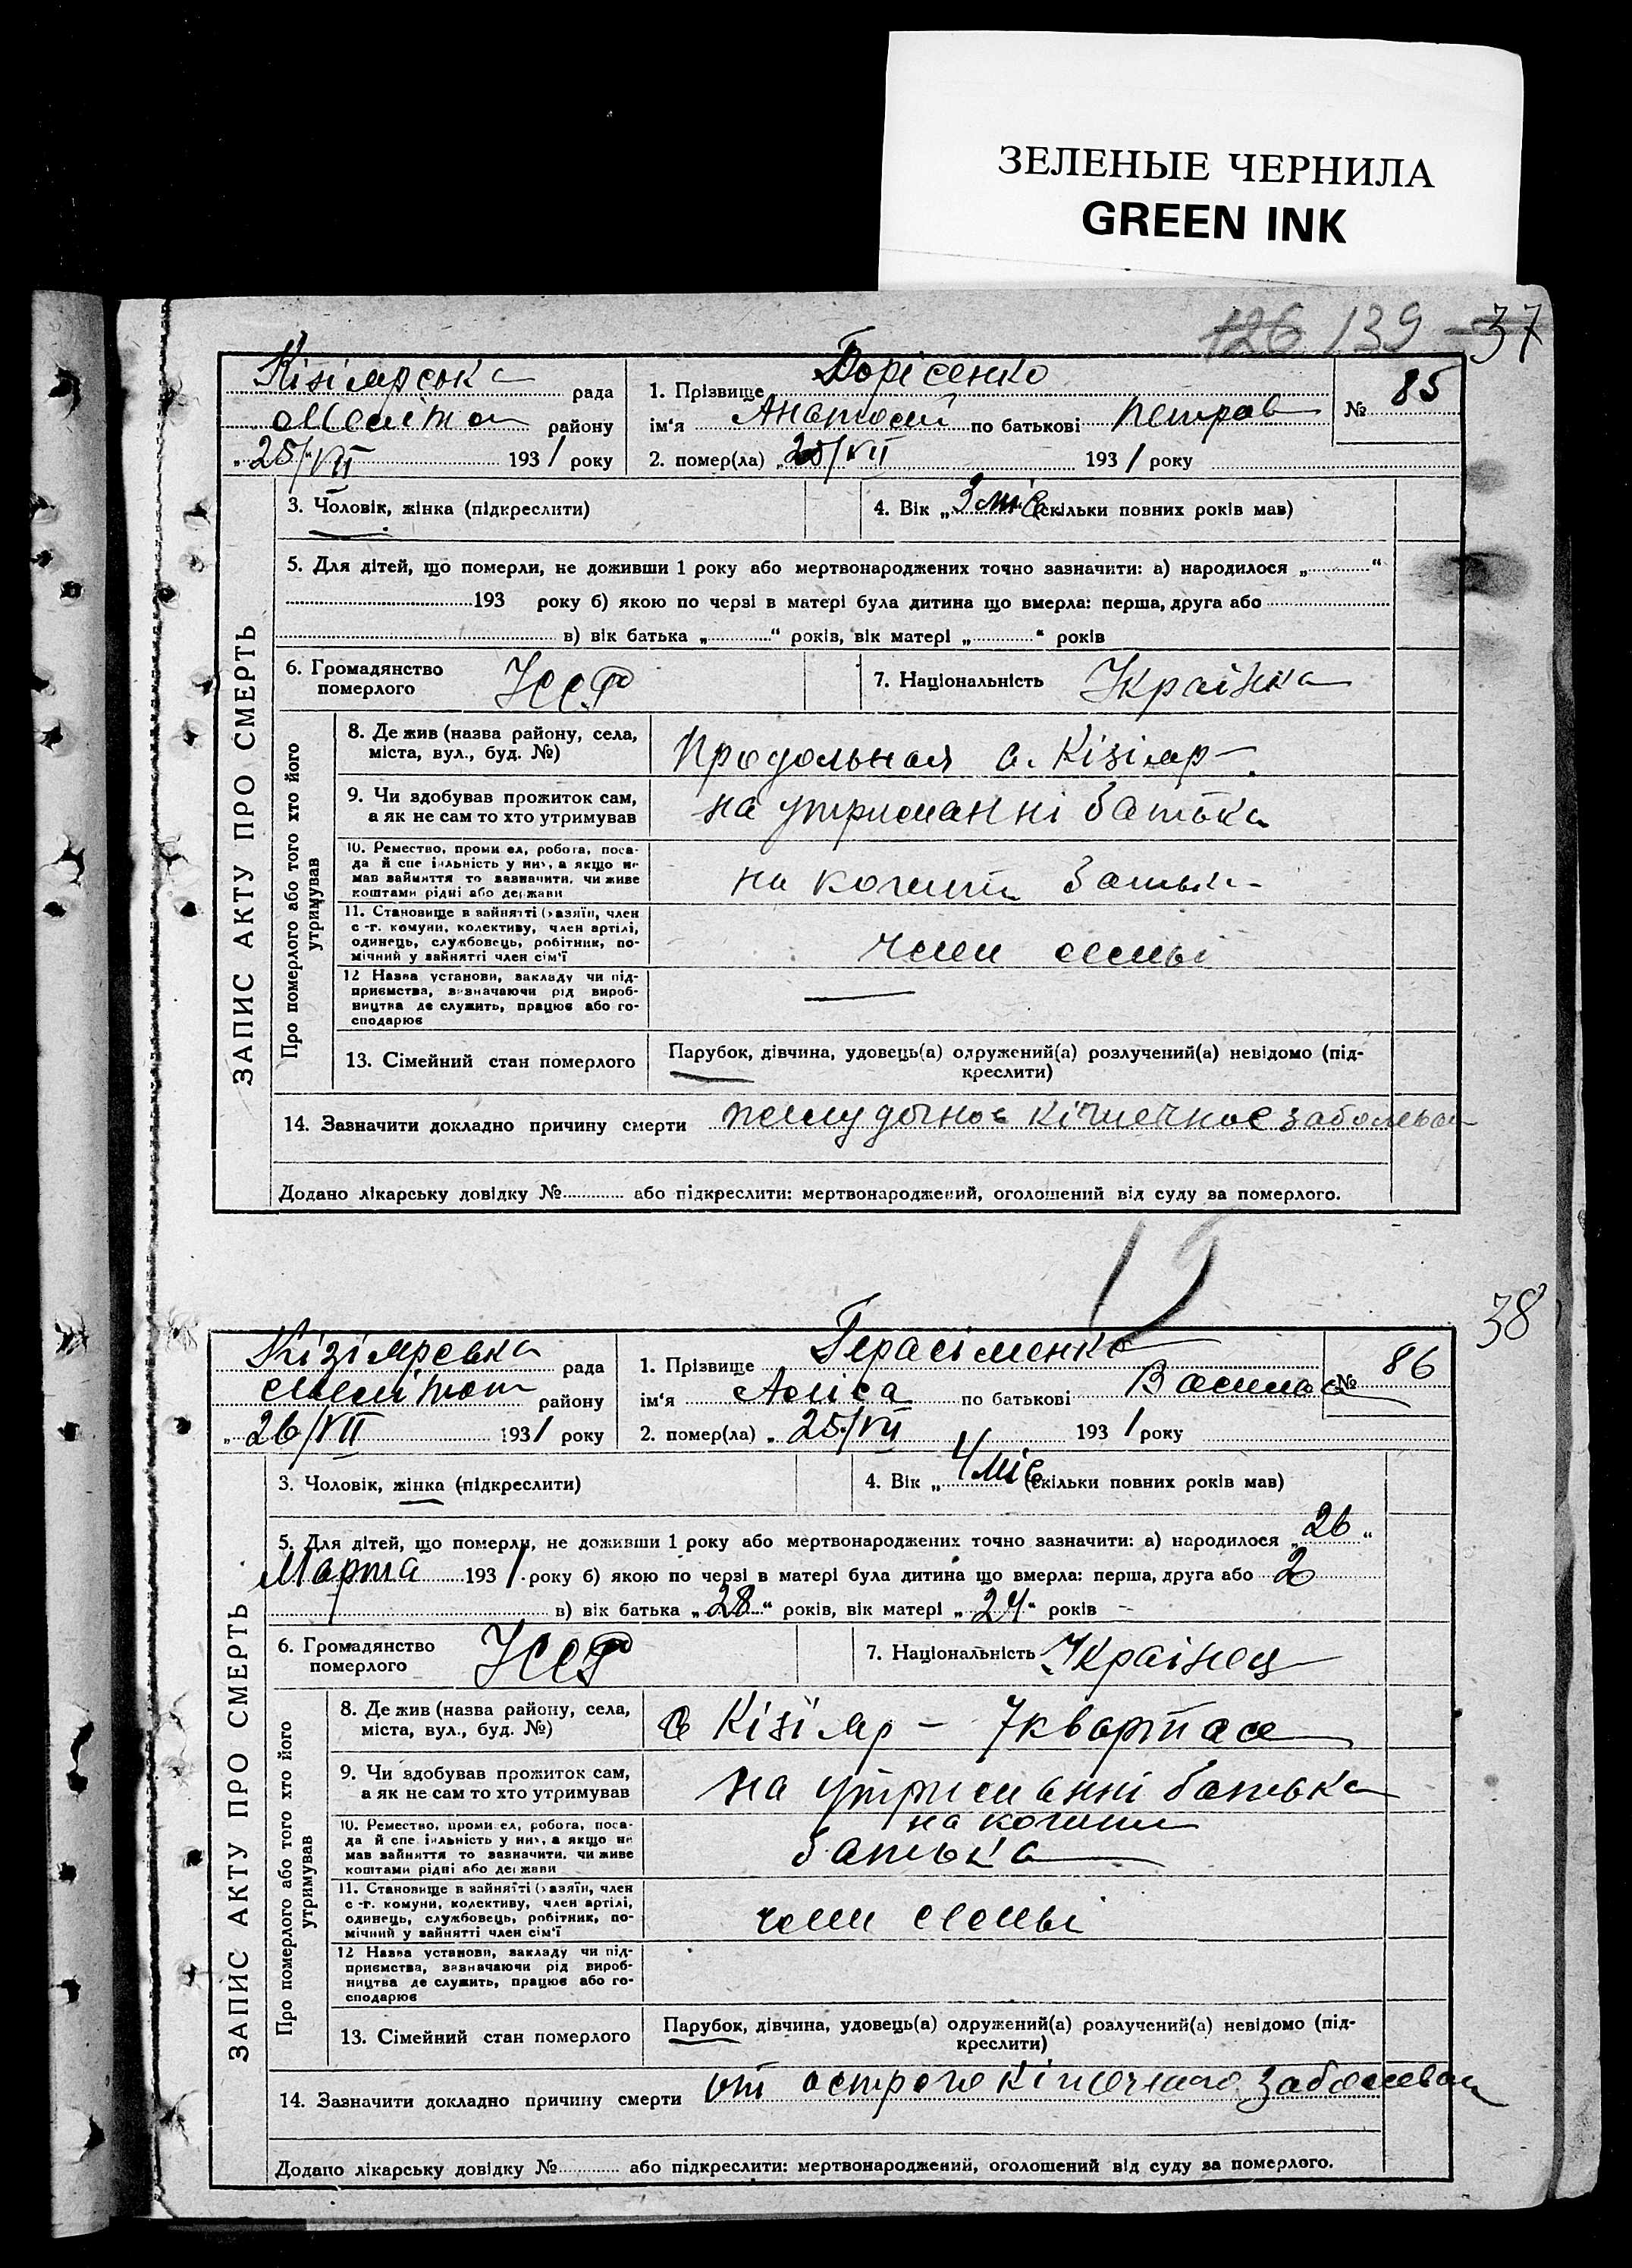 ЗЕЛЕНЫЕ ЧЕРНИЛА
GREEN INK
126 139 37
Кізіярська рада
Меліт району
„25/VII 1931 року
1. Прізвище Борісенко
ім‘я Анатолій по батькові Петров
№ 85
2. помер(ла) „25/VII 1931 року
3. Чоловік, жінка (підкреслити)
4. Вік „3 міс (скільки повних років мав)
5. Для дітей, що померли, не доживши 1 року або мертвонароджених точно зазначити: а) народилося „ “
193 року б) якою по черзі в матері була дитина що вмерла: перша, друга або
в) вік батька „ “ років, вік матері „ “ років
6. Громадянство
померлого
УССР
7. Національність Українка
ЗАПИС АКТУ ПРО СМЕРТЬ
Про померлого або того хто його
утримував
8. Де жив (назва району, села,
міста, вул., буд. №)
Продольная с. Кізіяр
9. Чи здобував прожиток сам,
а як не сам то хто утримував
на утриманні батька
10. Ремество, проми ел, робота, поса-
да й спе іяльність у них, а якщо не
мав зайняття то зазначити, чи живе
коштами рідні або держави
на кошти батька
11. Становище в зайнятті (хазяїн, член
с -г. комуни, колективу, член артілі,
одинець, службовець, робітник, по-
мічний у зайнятті член сім'ї
член семьі
12 Назва установи, закладу чи під-
приємства, визначаючи рід вироб-
ництва де служить, працює або го-
сподарює
13. Сімейний стан померлого
Парубок, дівчина, удовець(а) одружений(а) розлучений(а) невідомо (під-
креслити)
14. Зазначити докладно причину смерти желудочное кішечное заболеван
Додано лікарську довідку № або підкреслити: мертвонароджений, оголошений від суду за померлого.
38
Кізіярська рада
Меліт району
„26/VII 1931 року
1. Прізвище Герасіменко
ім‘я Аліса по батькові Василь
№ 86
2. помер(ла) „25/VII 1931 року
3. Чоловік, жінка (підкреслити)
4. Вік „4 міс (скільки повних років мав)
5. Для дітей, що померли, не доживши 1 року або мертвонароджених точно зазначити: а) народилося „26“
Марта 1931 року б) якою по черзі в матері була дитина що вмерла: перша, друга або 2
в) вік батька „28“ років, вік матері „24“ років
6. Громадянство
померлого
УССР
7. Національність Українец
ЗАПИС АКТУ ПРО СМЕРТЬ
Про померлого або того хто його
утримував
8. Де жив (назва району, села,
міста, вул., буд. №)
с Кізіяр – 7 квартал
9. Чи здобував прожиток сам,
а як не сам то хто утримував
на утриманні батька
10. Ремество, проми ел, робота, поса-
да й спе іяльність у них, а якщо не
мав зайняття то зазначити, чи живе
коштами рідні або держави
на кошти
батька
11. Становище в зайнятті (хазяїн, член
с -г. комуни, колективу, член артілі,
одинець, службовець, робітник, по-
мічний у зайнятті член сім'ї
член семьі
12 Назва установи, закладу чи під-
приємства, визначаючи рід вироб-
ництва де служить, працює або го-
сподарює
13. Сімейний стан померлого
Парубок, дівчина, удовець(а) одружений(а) розлучений(а) невідомо (під-
креслити)
14. Зазначити докладно причину смерти от острого кішечного заболеван
Додано лікарську довідку № або підкреслити: мертвонароджений, оголошений від суду за померлого.